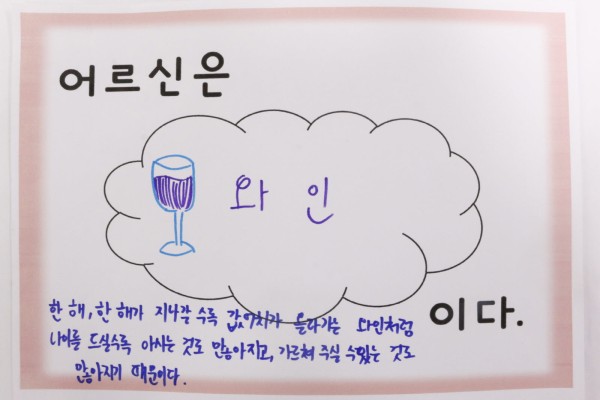 어르신은
와인
이다.
한 해, 한 해가 지나갈 수록 값어치가 올라가는 와인처럼
나이를 드실수록 아시는 것도 많아지고, 가르쳐 주실 수있는 것도
많아지기 때문이다.